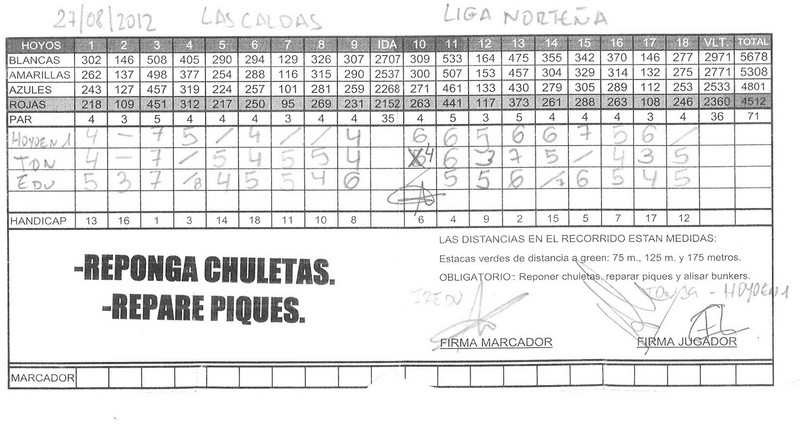 27/08/2012 LAS CALDAS LIGA NORTEÑA
HOYOS 1 2 3 4 5 6 7 8 9 IDA 10 11 12 13 14 15 16 17 18 VLT. TOTAL
BLANCAS 302 146 508 405 290 294 129 326 307 2707 309 533 164 475 355 342 370 146 277 2971 5678
AMARILLAS 262 137 498 377 254 288 116 315 290 2537 300 507 153 457 304 329 314 132 275 2771 5308
AZULES 243 127 457 319 224 257 101 281 259 2268 271 461 133 430 279 305 289 112 253 2533 4801
ROJAS 218 109 451 312 217 250 95 269 231 2152 263 441 117 373 261 288 263 108 246 2360 4512
PAR 4 3 5 4 4 4 3 4 4 35 4 5 3 5 4 4 4 3 4 36 71
HOYOEN1 4 - 7 5 / 4 / / 4 6 6 5 6 6 7 5 6 /
TON 4 - 7 / 5 4 5 5 4 4 6 3 7 5 / 4 3 5
EDU 5 3 7 /8 4 5 5 4 6 / 5 5 6 /7 6 5 4 5
HANDICAP 13 16 1 3 14 18 11 10 8 6 4 9 2 15 5 7 17 12
-REPONGA CHULETAS.
-REPARE PIQUES.
LAS DISTANCIAS EN EL RECORRIDO ESTAN MEDIDAS:
Estacas verdes de distancia a green: 75 m., 125 m. y 175 metros.
OBLIGATORIO: Reponer chuletas, reparar piques y alisar bunkers.
- HOYOEN1
FIRMA MARCADOR FIRMA JUGADOR
MARCADOR